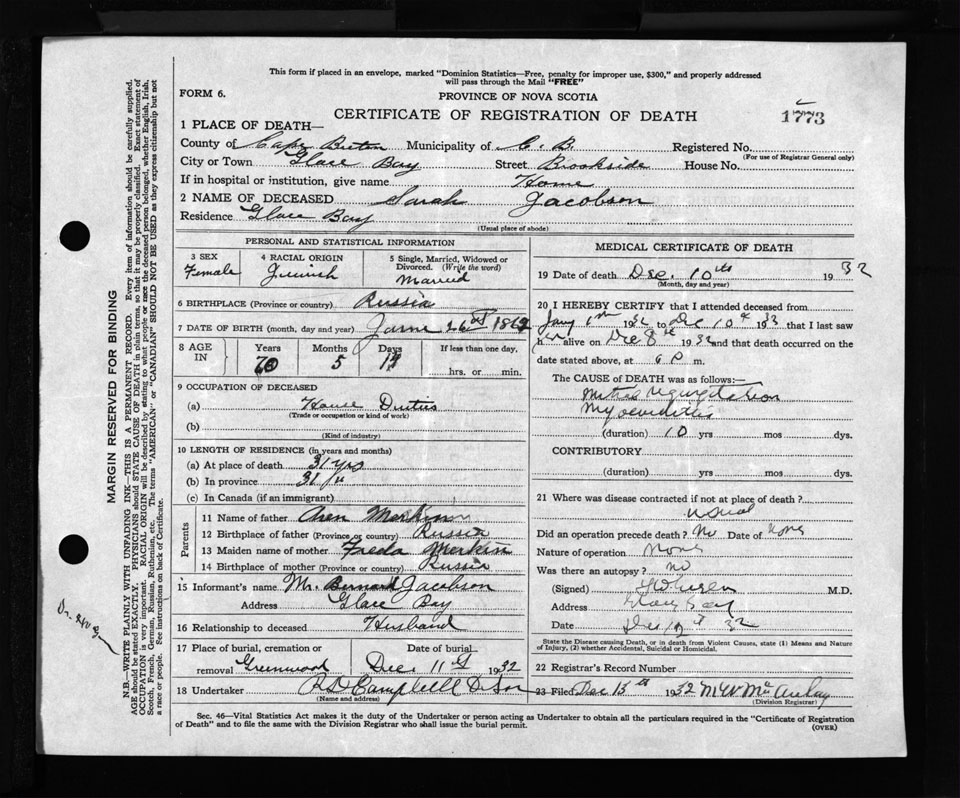 This form if placed in an envelope, marked "Dominion Statistics—Free, penalty for improper use, $300," and properly addressed
will pass through the Mail "FREE"
FORM 6.
PROVINCE OF NOVA SCOTIA
CERTIFICATE OF REGISTRATION OF DEATH
1773
1 PLACE OF DEATH—
County of Cape Breton Municipality of C. B. Registered No.
(For use of Registrar General only)
City or Town Glace Bay Street Brookside House No.
If in hospital or institution, give name Home
2 NAME OF DECEASED Sarah Jacobson
Residence Glace Bay
(Usual place of abode)
PERSONAL AND STATISTICAL INFORMATION
3 SEX 4 RACIAL ORIGIN 5 Single, Married, Widowed or
Divorced. (Write the word)
Female Jewish Married
6 BIRTHPLACE (Province or country) Russia
7 DATE OF BIRTH (month, day and year) 26 1862
8 AGE IN Years Months Days If less than one day,
70 5
hrs. or min.
9 OCCUPATION OF DECEASED
(a) House Duties
(Trade or occupation or kind of work)
(b)
(Kind of industry)
10 LENGTH OF RESIDENCE (in years and months)
(a) At place of death 31 yrs
(b) In province 31 yr
(c) In Canada (if an immigrant)
Parents
11 Name of father Aren Merkin
12 Birthplace of father (Province or country) Russia
13 Maiden name of mother Freda Merkin
14 Birthplace of mother (Province or country) Russia
15 Informant's name Mr. Bernard Jacobson
Address Glace Bay
16 Relationship to deceased Husband
17 Place of burial, cremation or removal Greenwood
Date of burial Dec. 11th 1932
18 Undertaker R D Campbell & Son
(Name and address)
MEDICAL CERTIFICATE OF DEATH
19 Date of death Dec. 10th 1932
(Month, day and year)
20 I HEREBY CERTIFY that I attended deceased from
1932 to Dec 10th 1932 that I last saw
her alive on Dec 8th 1932 and that death occurred on the
date stated above, at 6 P m.
The CAUSE OF DEATH was as follows:—
Mitral regurgitation
Myocarditis
(duration) 10 yrs mos dys.
CONTRIBUTORY
(duration) yrs mos dys.
21 Where was disease contracted if not at place of death?
usual
Did an operation precede death? No Date of None
Nature of operation None
Was there an autopsy? no
(Signed) M.D.
Address Glace Bay
Date Dec 32
State the Disease causing Death, or in death from Violent Causes, state (1) Means and Nature
of Injury, (2) whether Accidental, Suicidal or Homicidal.
22 Registrar's Record Number
23 Filed Dec 15th 1932 McAulay
(Division Registrar)
Sec. 46—Vital Statistics Act makes it the duty of the Undertaker or person acting as Undertaker to obtain all the particulars required in the "Certificate of Registration
of Death" and to file the same with the Division Registrar who shall issue the burial permit.
(OVER)
MARGIN RESERVED FOR BINDING
N.B.—WRITE PLAINLY WITH UNFADING INK—THIS IS A PERMANENT RECORD. Every item of information should be carefully supplied.
AGE should be stated EXACTLY. PHYSICIANS should STATE CAUSE OF DEATH in plain terms, so that it may be properly classified. Exact statement of
OCCUPATION is very important. RACIAL ORIGIN will be described by stating to what people or race the deceased person belonged, whether English, Irish,
Scotch, French, German, Russian, Ruthenian, etc. The terms "AMERICAN" or "CANADIAN" SHOULD NOT BE USED as they express citizenship but not
a race or people. See instructions on back of Certificate.